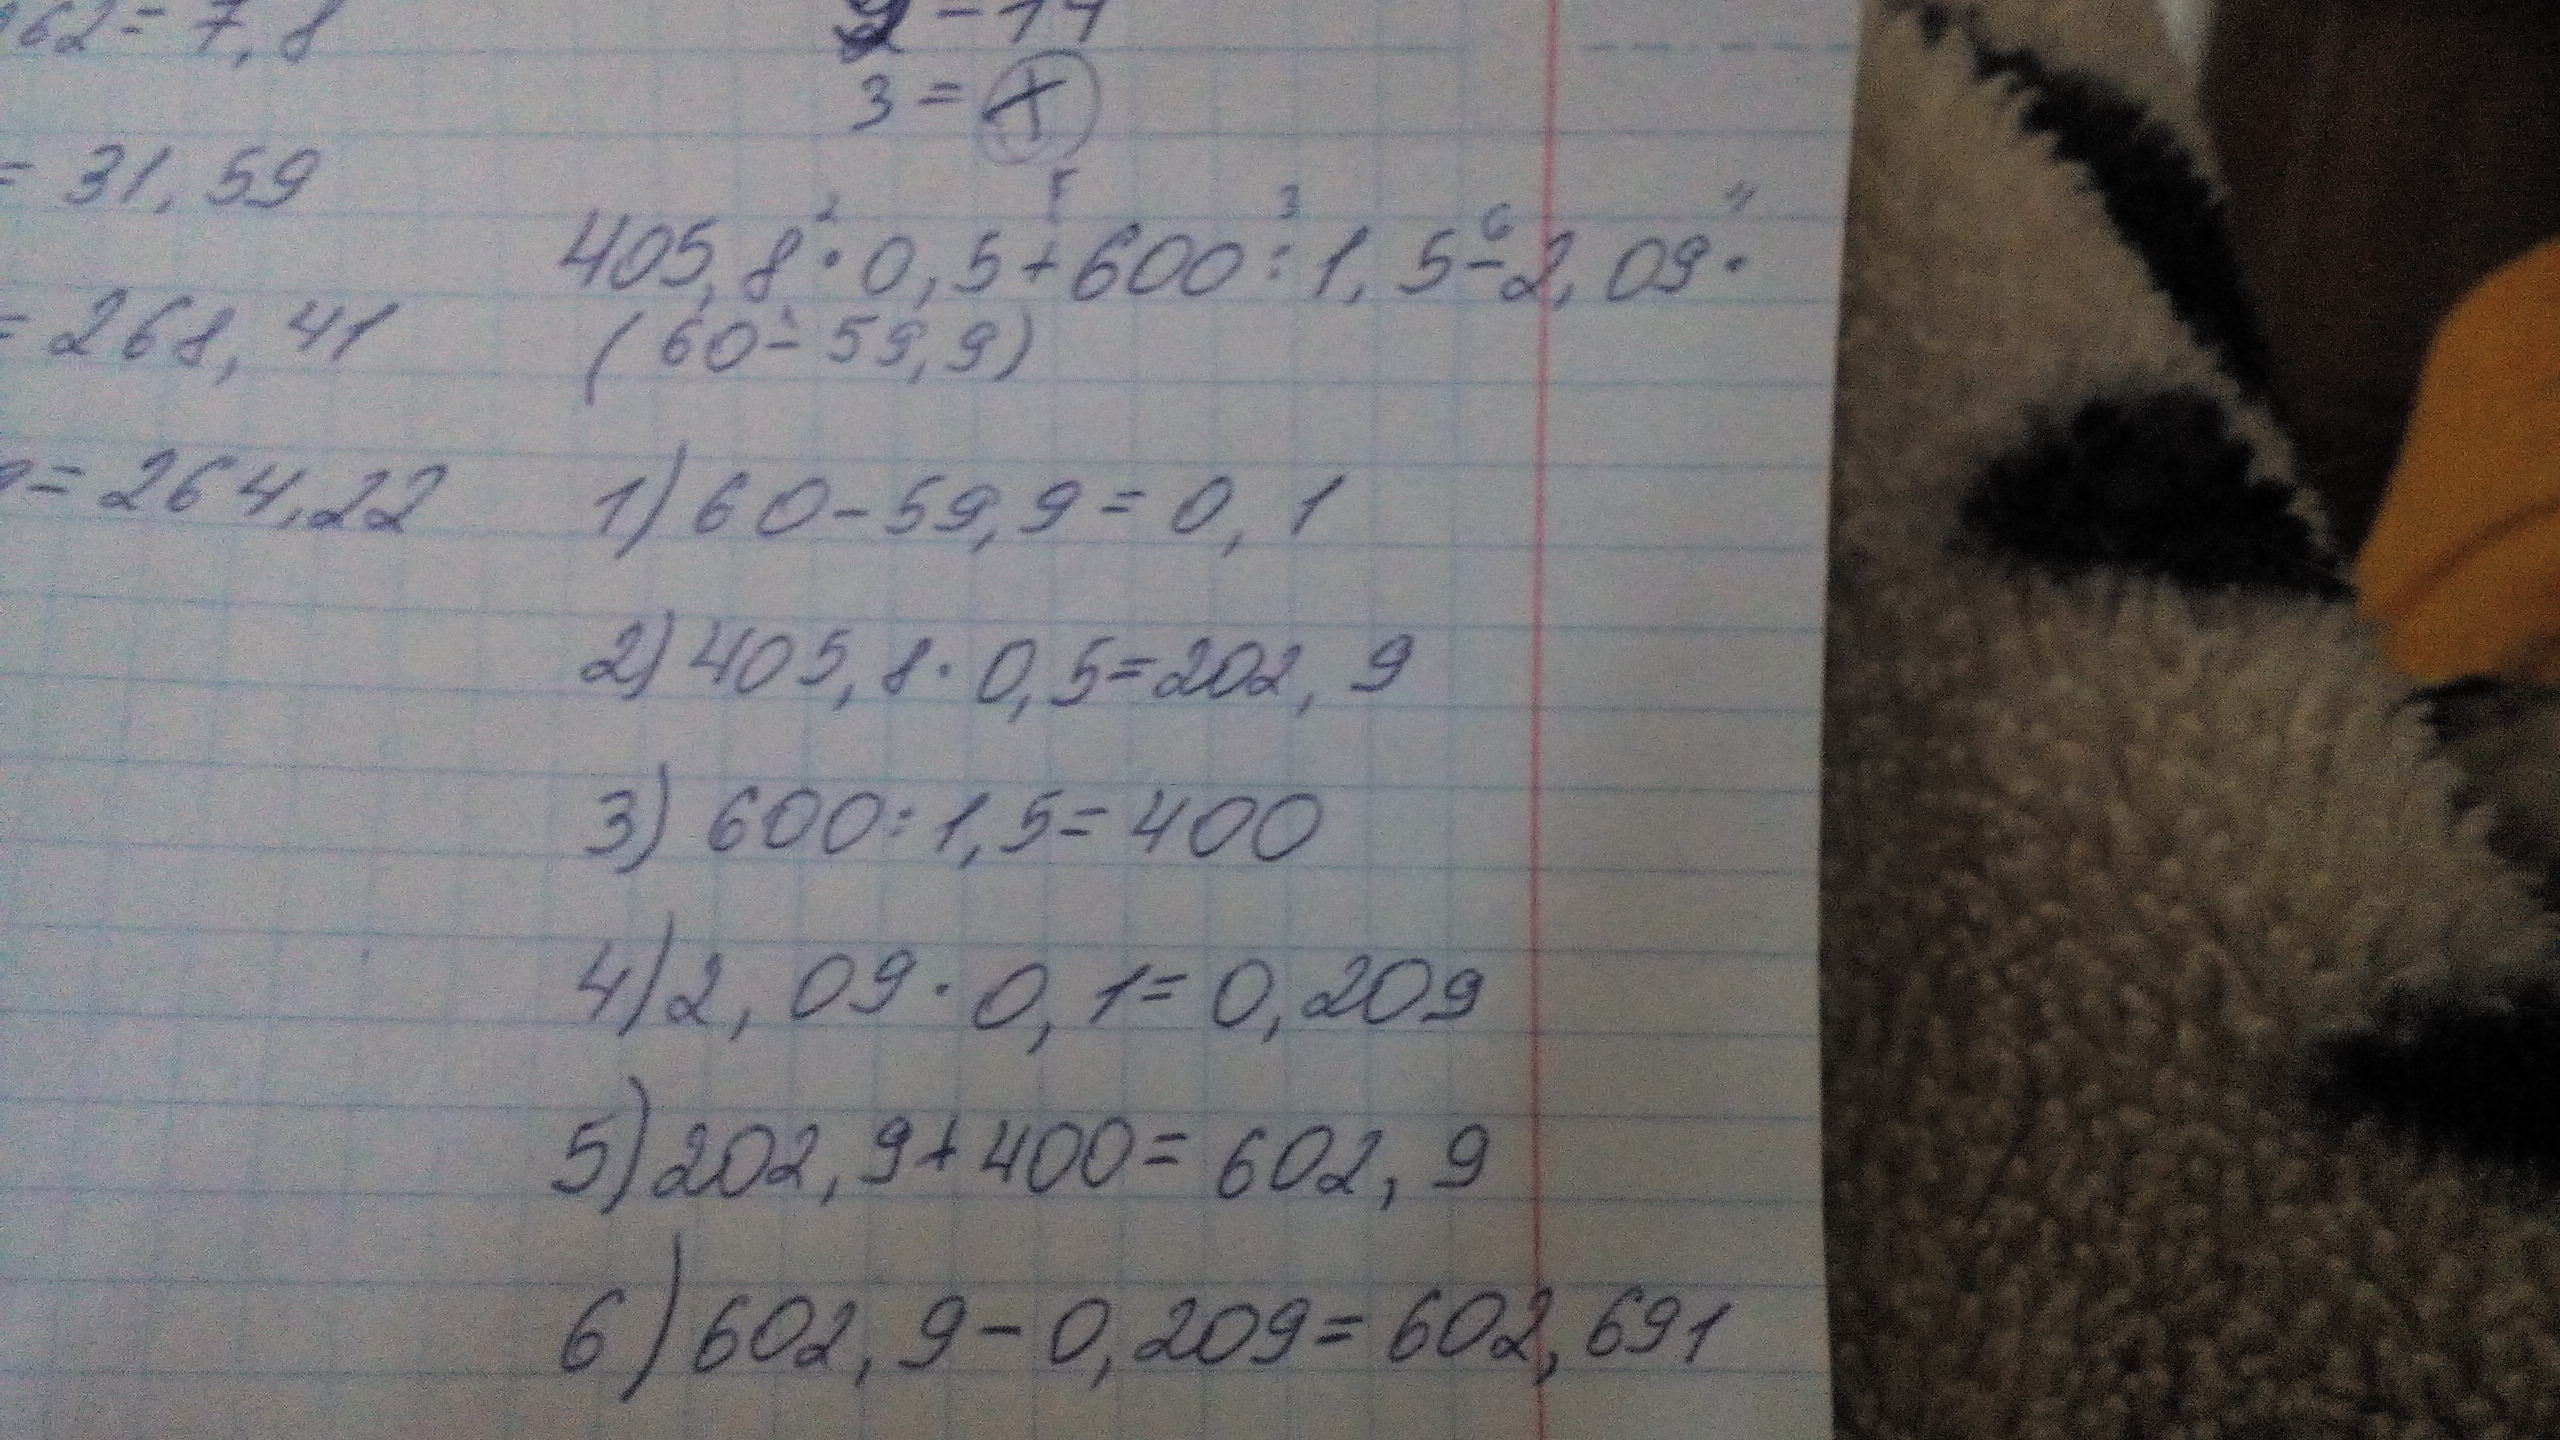 162=7,8
= 31,59
= 268,41
9=264,22
2-14
3=X
405,8·0,5+600:1,5-2,09·
(60-59,9)
1) 60-59,9=0,1
2) 405,8·0,5=202,9
3) 600:1,5=400
4) 2,09·0,1=0,209
5) 202,9+400=602,9
6) 602,9-0,209=602,691